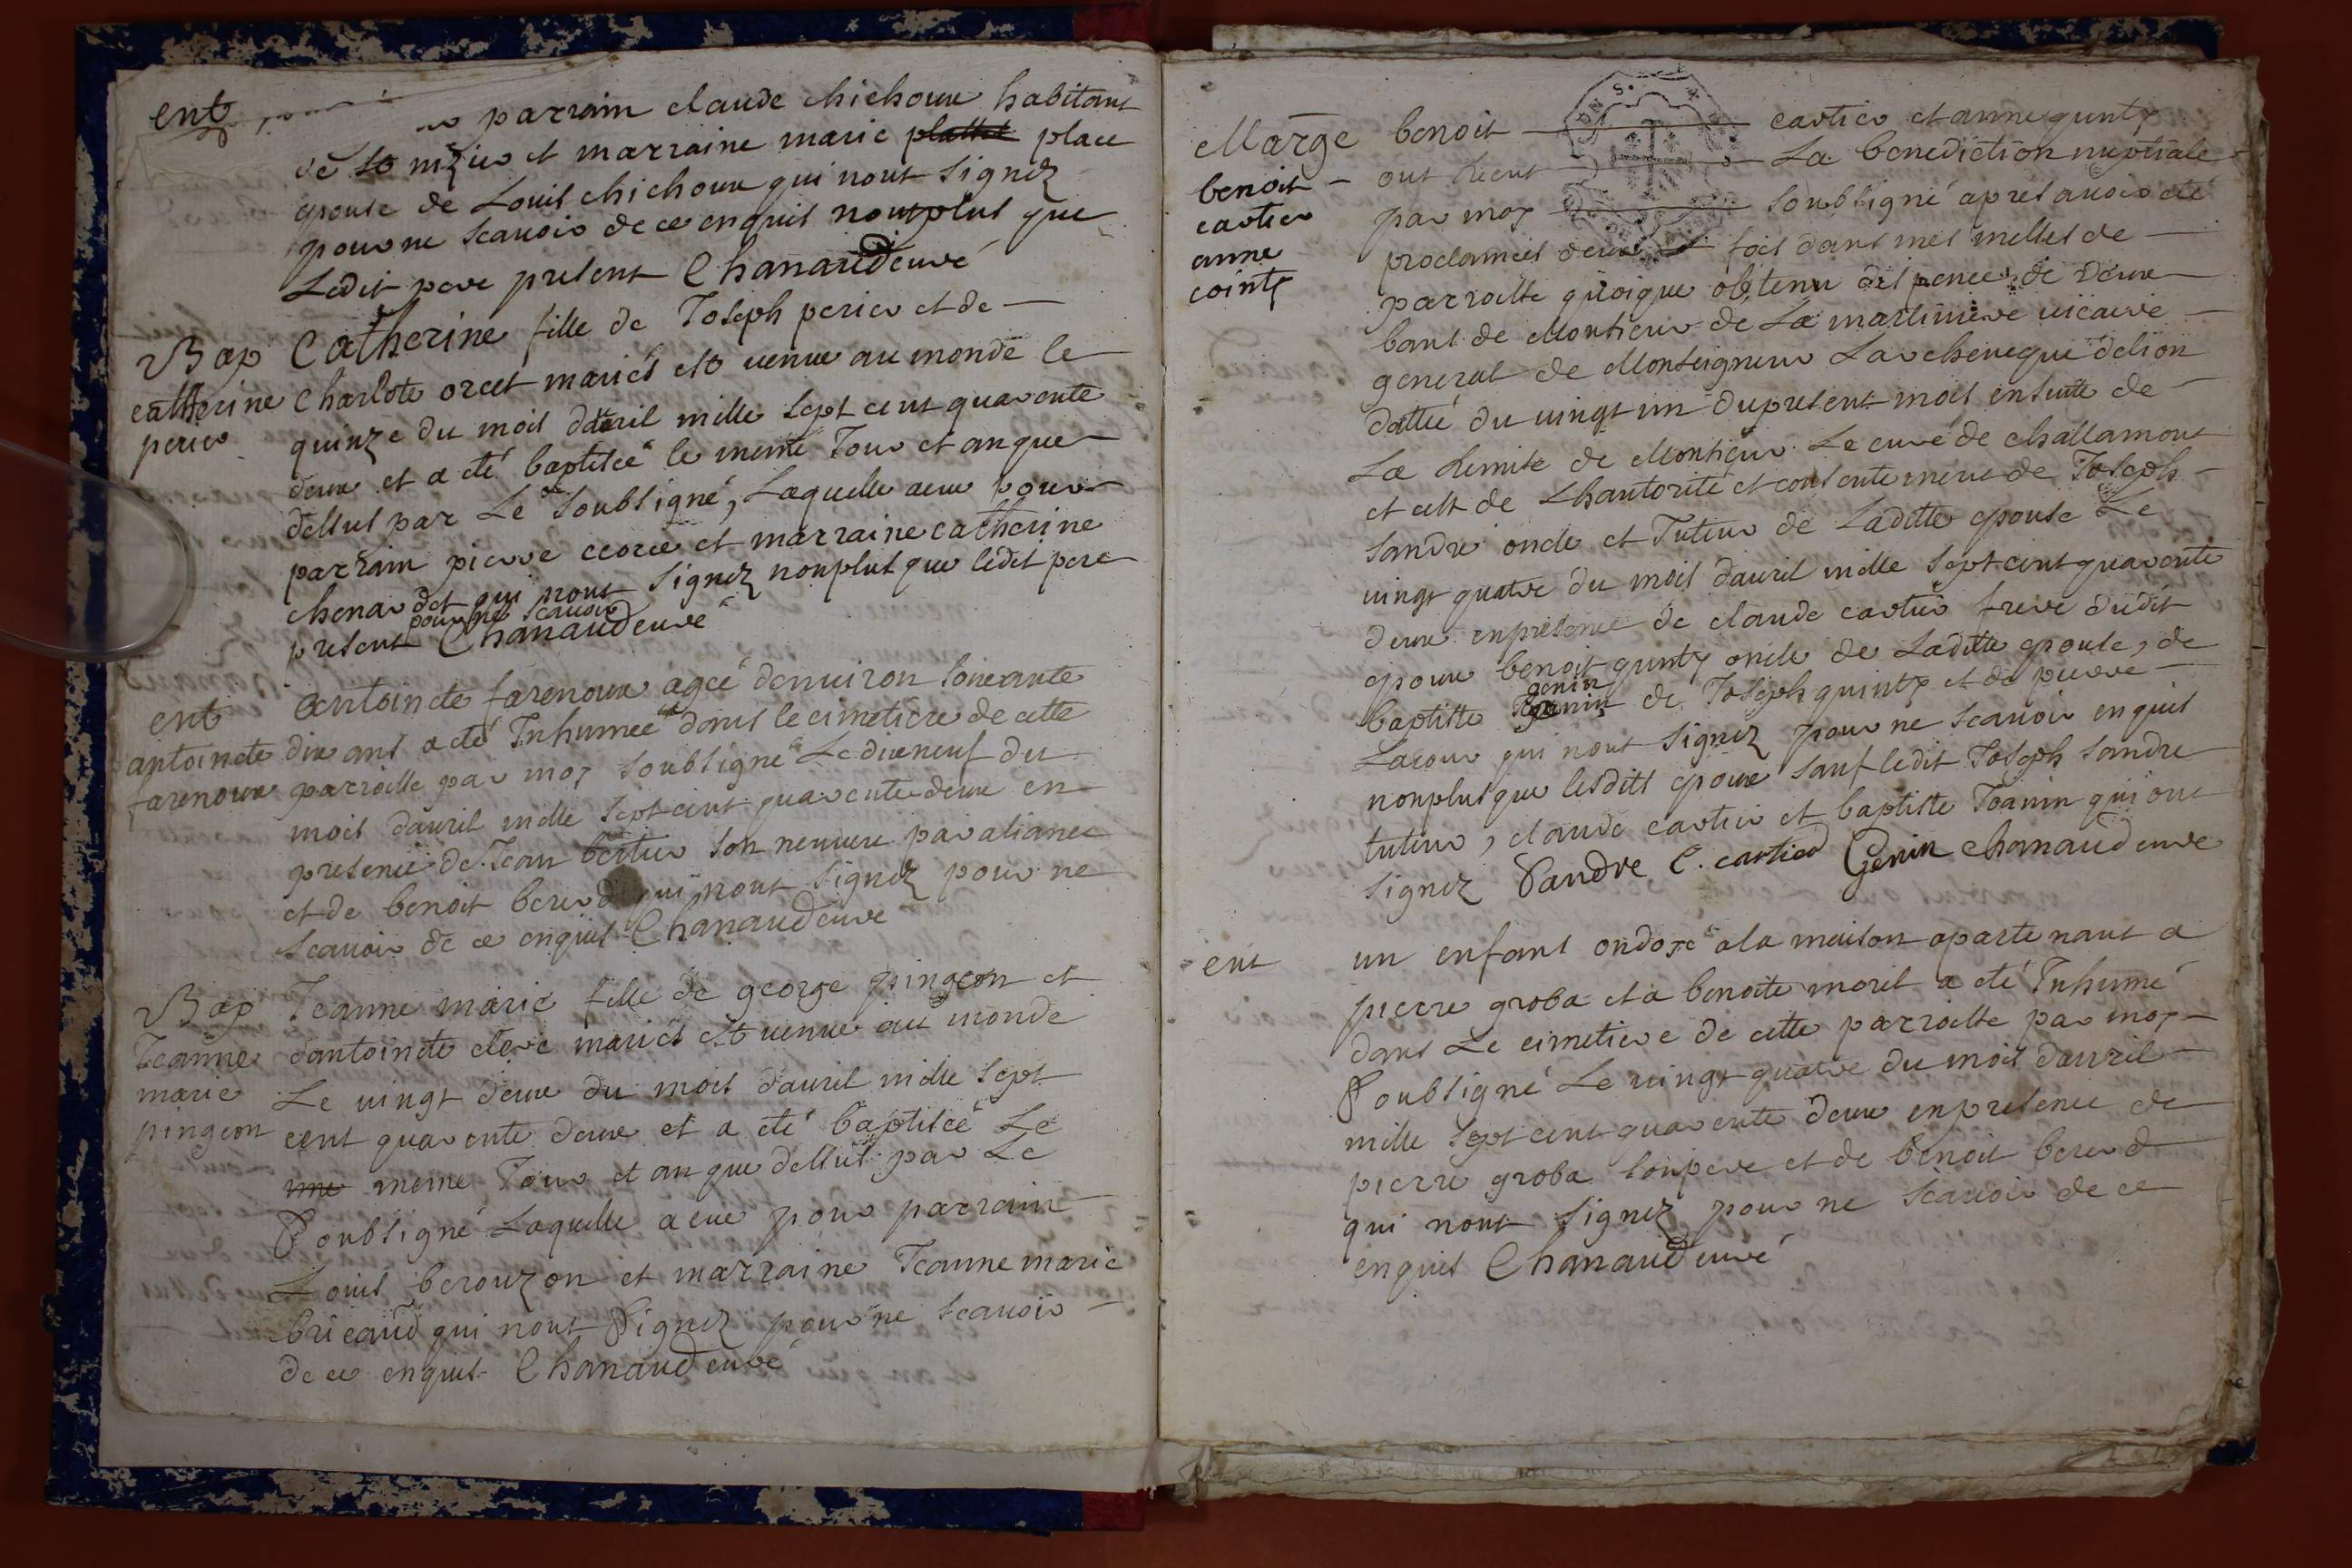 ent
parrain claude chichoux habitant
de st nizier et marraine marie plattet place
epouse de Louis chichoux qui nont signez
pour ne scauoir de ce enquis nonplus que
Ledit pere present Chanaud curé
Bap
catherine
perier
Catherine fille de Joseph perier et de
Charlote orcet mariés est venue au monde le
quinze du mois dauril mille sept cent quarente
deux et a eté baptisée le meme Jour et an que
dessus par Le soubsigné, Laquelle a eu pour
parrain pierre ceorce et marraine catherine
chenardet qui nont signez nonplus que ledit pere
pour ne scauoir
present Chanaud curé
ent
antoinete
farenoux
antoinete farenoux agée denuiron soixante
dix ans a eté Inhumée dans le cimetiere de cette
parroisse par moy soubsigné Le dixneuf du
mois dauril mille sept cent quarente deux en
presence de Jean bertier son neueu par aliance
et de benoit bererd qui nont signez pour ne
scauoir de ce enquis Chanaud curé
Bap
Jeanne
marie
pingeon
Jeanne marie fille de george pingeon et
dantoinete clere mariés est venue au monde
Le uingt deux du mois dauril mille sept
cent quarente deux et a eté baptisée Le
me meme Jour et an que dessus par Le
Soubsigné Laquelle a eue pour parrain
Louis berouzon et marraine Jeanne marie
bricaud qui nont Signez pour ne scauoir
de ce enquis Chanaud curé
Marge
benoit
cartier
anne
cointy
benoit cartier et anne quinty
ont Receut La benediction nuptiale
par moy soubsigné apres auoir eté
proclamés deux fois dans mes messes de
parroisse quoique obtenu dispence de deux
bans de Monsieur de La martiniere uicaire
general de Monseigneur Larcheueque de lion
dattée du uingt un du present mois ensuitte de
La Remise de Monsieur Le curé de challamont
et est de Lhautorité et consentement de Joseph
sandre oncle et Tuteur de Laditte epouse Le
uingt quatre du mois dauril mille sept cent quarente
deux en presence de claude cartier frere dudit
epoux benoit quinty oncle de Laditte epouse, de
genin
baptiste Jenin de Joseph quinty et de pierre
Lacour qui nont signez pour ne scauoir enquis
nonplus que lesdits epoux sauf ledit Joseph sandre
tuteur, claude cartier et baptiste Joanin qui ont
signez Sandre C. cartier Genin chanaud curé
ent
un enfant ondoyé a la maison apartenant a
pierre groba et a benoite morel a eté Inhumé
dans Le cimetiere de cette parroisse par moy
Soubsigné Le uingt quatre du mois dauril
mille sept cent quarente deux en presence de
pierre groba son pere et de benoit bererd
qui nont signez pour ne scauoir de ce
enquis Chanaud curé